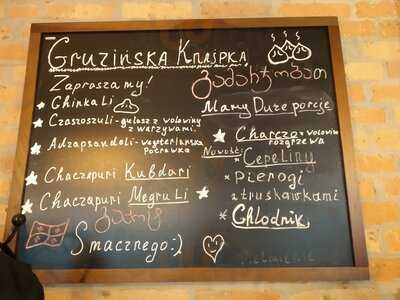 Gruzińska Knajpka
Zapraszamy!
Ghinkali
Czaszoszuli - gulasz z wołowiny
z warzywami.
Adzapsandali - wegetariańska
Potrawka
Chaczapuri Kubdari
Chaczapuri Megruli
Smacznego :)
გამარჯობათ
Mamy Duże porcje
Charczo z wołowiny
rozgrzewa
Nowość!
Cepeliny
Pierogi
z truskawkami
Chłodnik